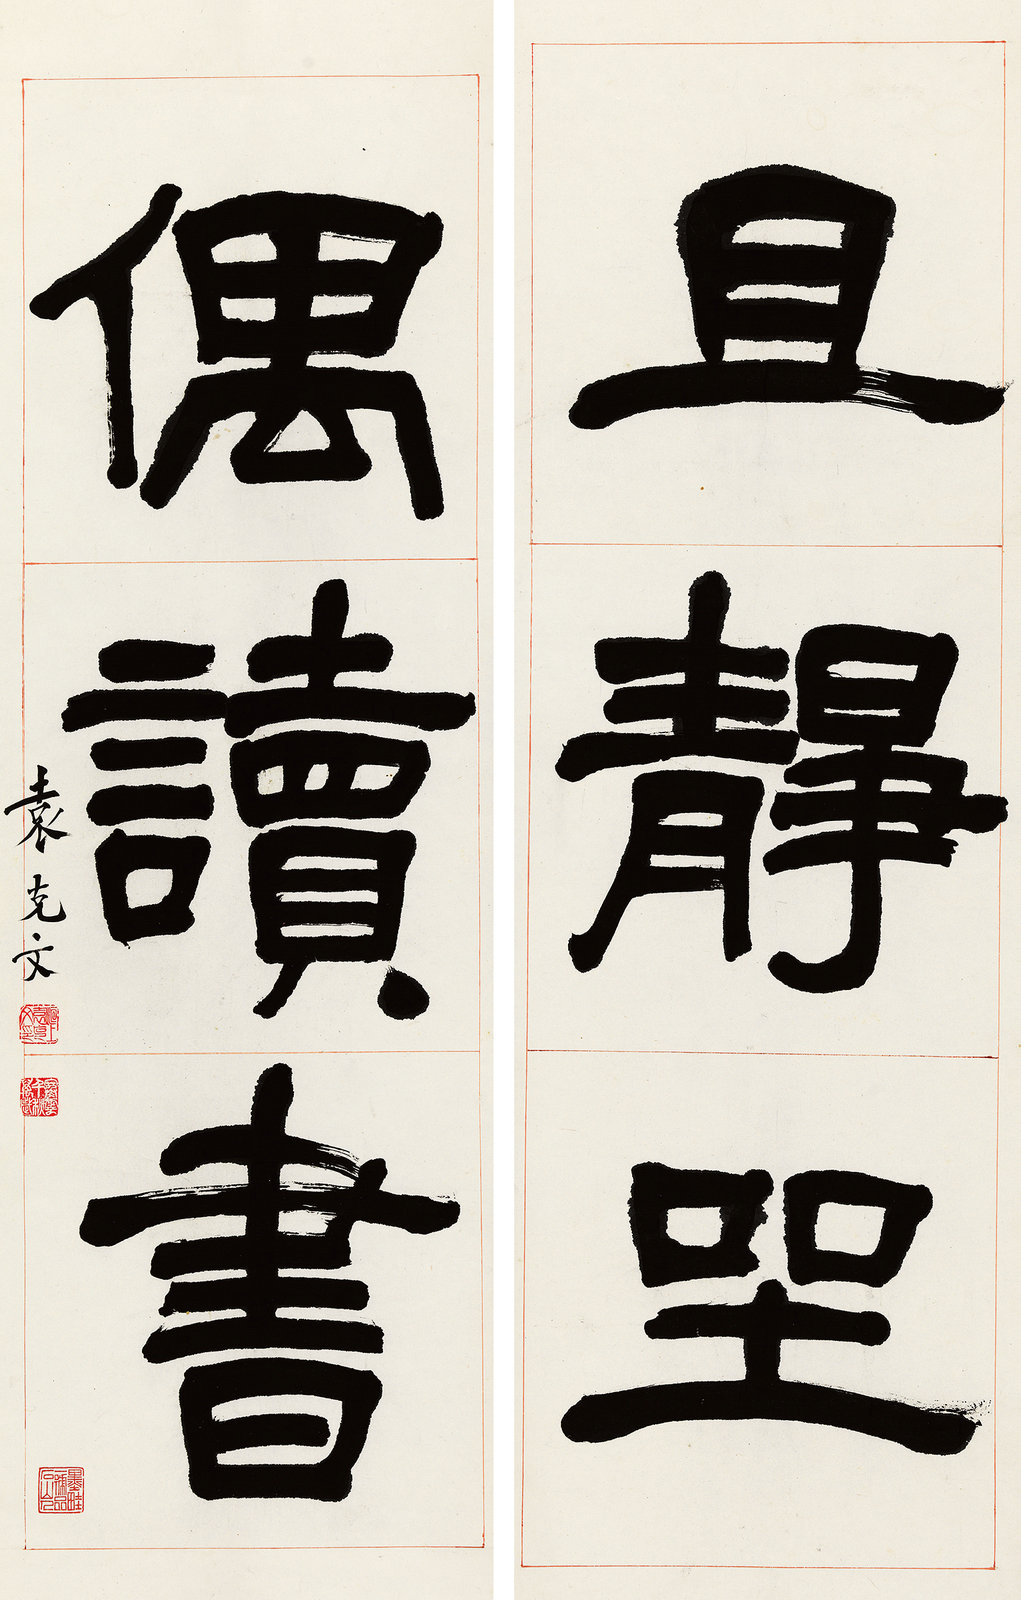 且靜坐
偶讀書
袁克文